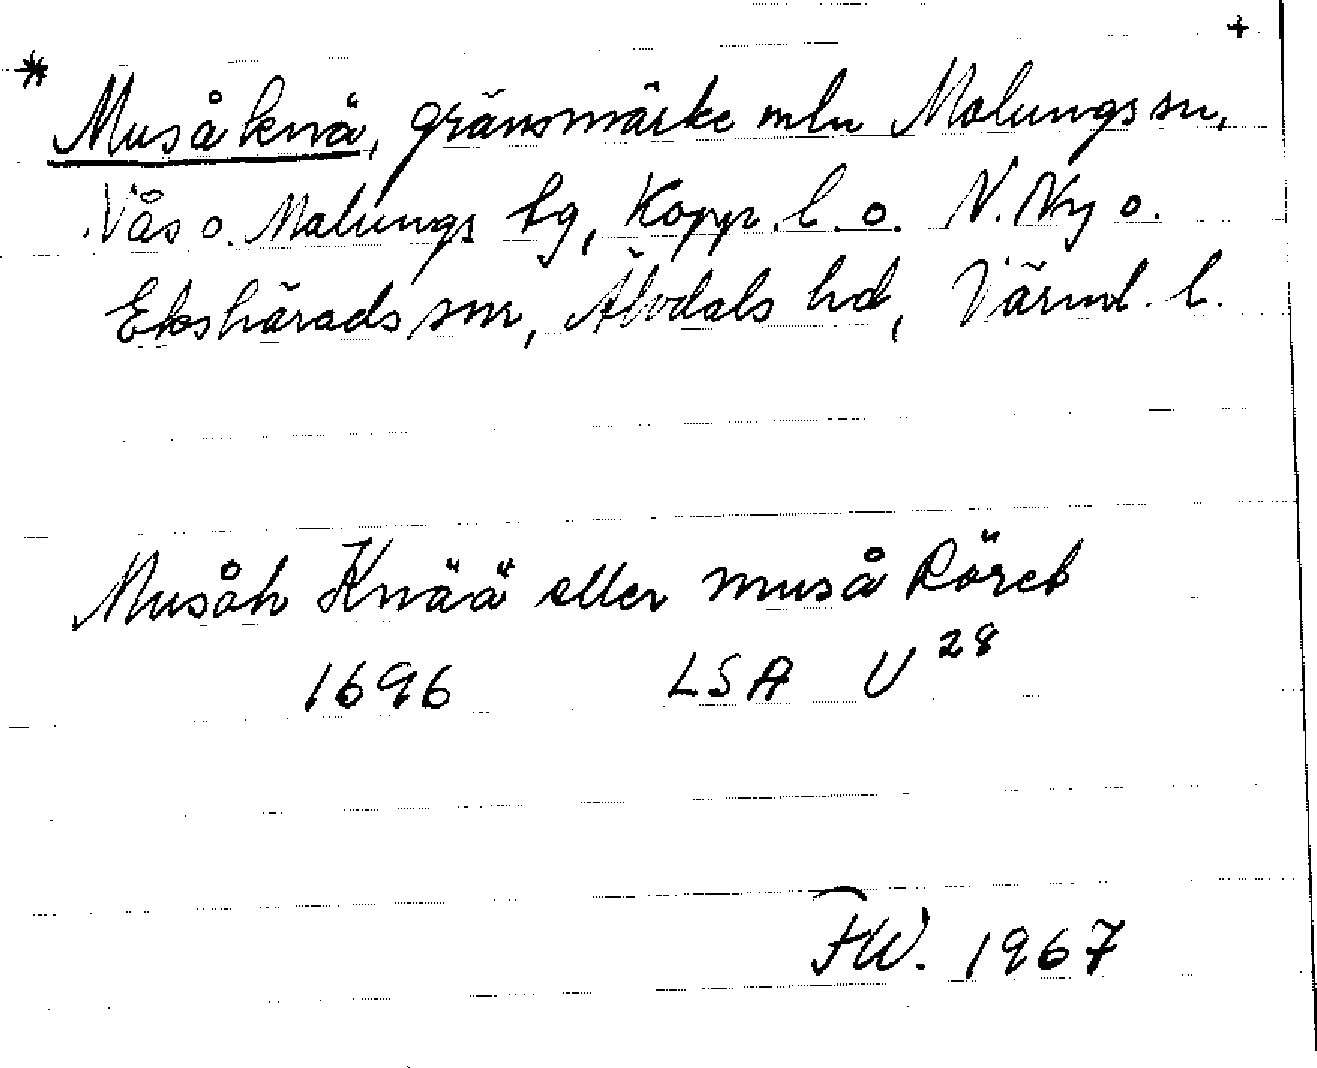 * Muså knä, gränsmärke mln Malungs sn, +
Vås o. Malungs tg, Kopp. l. o. N. Ny o.
Ekshärads snr, Älvdals hd, Värml. l.
Musåh Knää eller muså Röret
1696 LSA U 28
FW. 1967